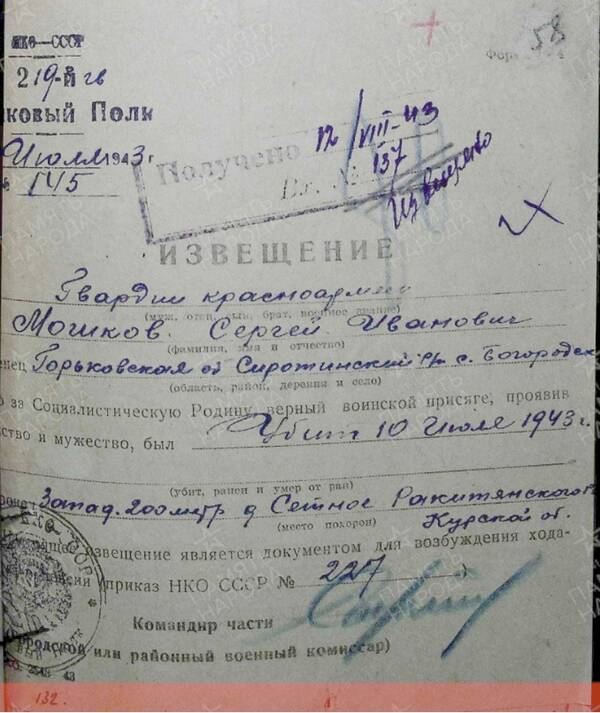 НКО—СССР
58
219-й гв
ковый Полк
Июля 1943 г.
№ 145
Получено 12/VIII-43
Вх. № 137
ИЗВЕЩЕНИЕ
Гвардии красноармеец
(муж, отец, сын, брат, военное звание)
Мошков Сергей Иванович
(фамилия, имя и отчество)
енец Горьковская об Сиротинский р/н с. Богородск
(область, район, деревня и село)
о за Социалистическую Родину, верный воинской присяге, проявив
ство и мужество, был Убит 10 Июля 1943 г.
(убит, ранен и умер от ран)
Запад. 200 мтр д Сетное Ракитянского
(место похорон) Курской об.
извещение является документом для возбуждения хода-
(приказ НКО СССР № 227)
Командир части
ородской или районный военный комиссар)
132.
ПАМЯТЬ НАРОДА